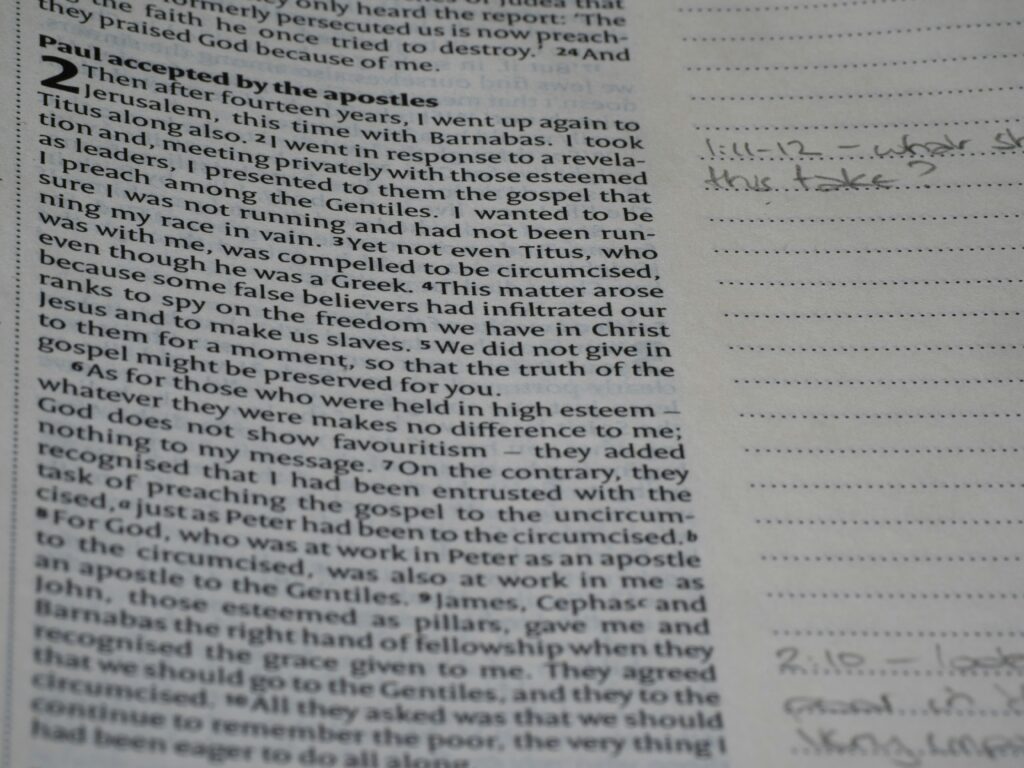 only heard the report: 'The
formerly persecuted us is now preach-
the faith he once tried to destroy.' 24 And
they praised God because of me.
Paul accepted by the apostles
2 Then after fourteen years, I went up again to
Jerusalem, this time with Barnabas. I took
Titus along also. 2 I went in response to a revela-
tion and, meeting privately with those esteemed
as leaders, I presented to them the gospel that
I preach among the Gentiles. I wanted to be
sure I was not running and had not been run-
ning my race in vain. 3 Yet not even Titus, who
was with me, was compelled to be circumcised,
even though he was a Greek. 4 This matter arose
because some false believers had infiltrated our
ranks to spy on the freedom we have in Christ
Jesus and to make us slaves. 5 We did not give in
to them for a moment, so that the truth of the
gospel might be preserved for you.
6 As for those who were held in high esteem –
whatever they were makes no difference to me;
God does not show favouritism – they added
nothing to my message. 7 On the contrary, they
recognised that I had been entrusted with the
task of preaching the gospel to the uncircum-
cised,a just as Peter had been to the circumcised.b
8 For God, who was at work in Peter as an apostle
to the circumcised, was also at work in me as
an apostle to the Gentiles. 9 James, Cephasc and
John, those esteemed as pillars, gave me and
Barnabas the right hand of fellowship when they
recognised the grace given to me. They agreed
that we should go to the Gentiles, and they to the
circumcised. 10 All they asked was that we should
continue to remember the poor, the very thing I
had been eager to do all along
1:11-12 – what
this take?
2:10 –